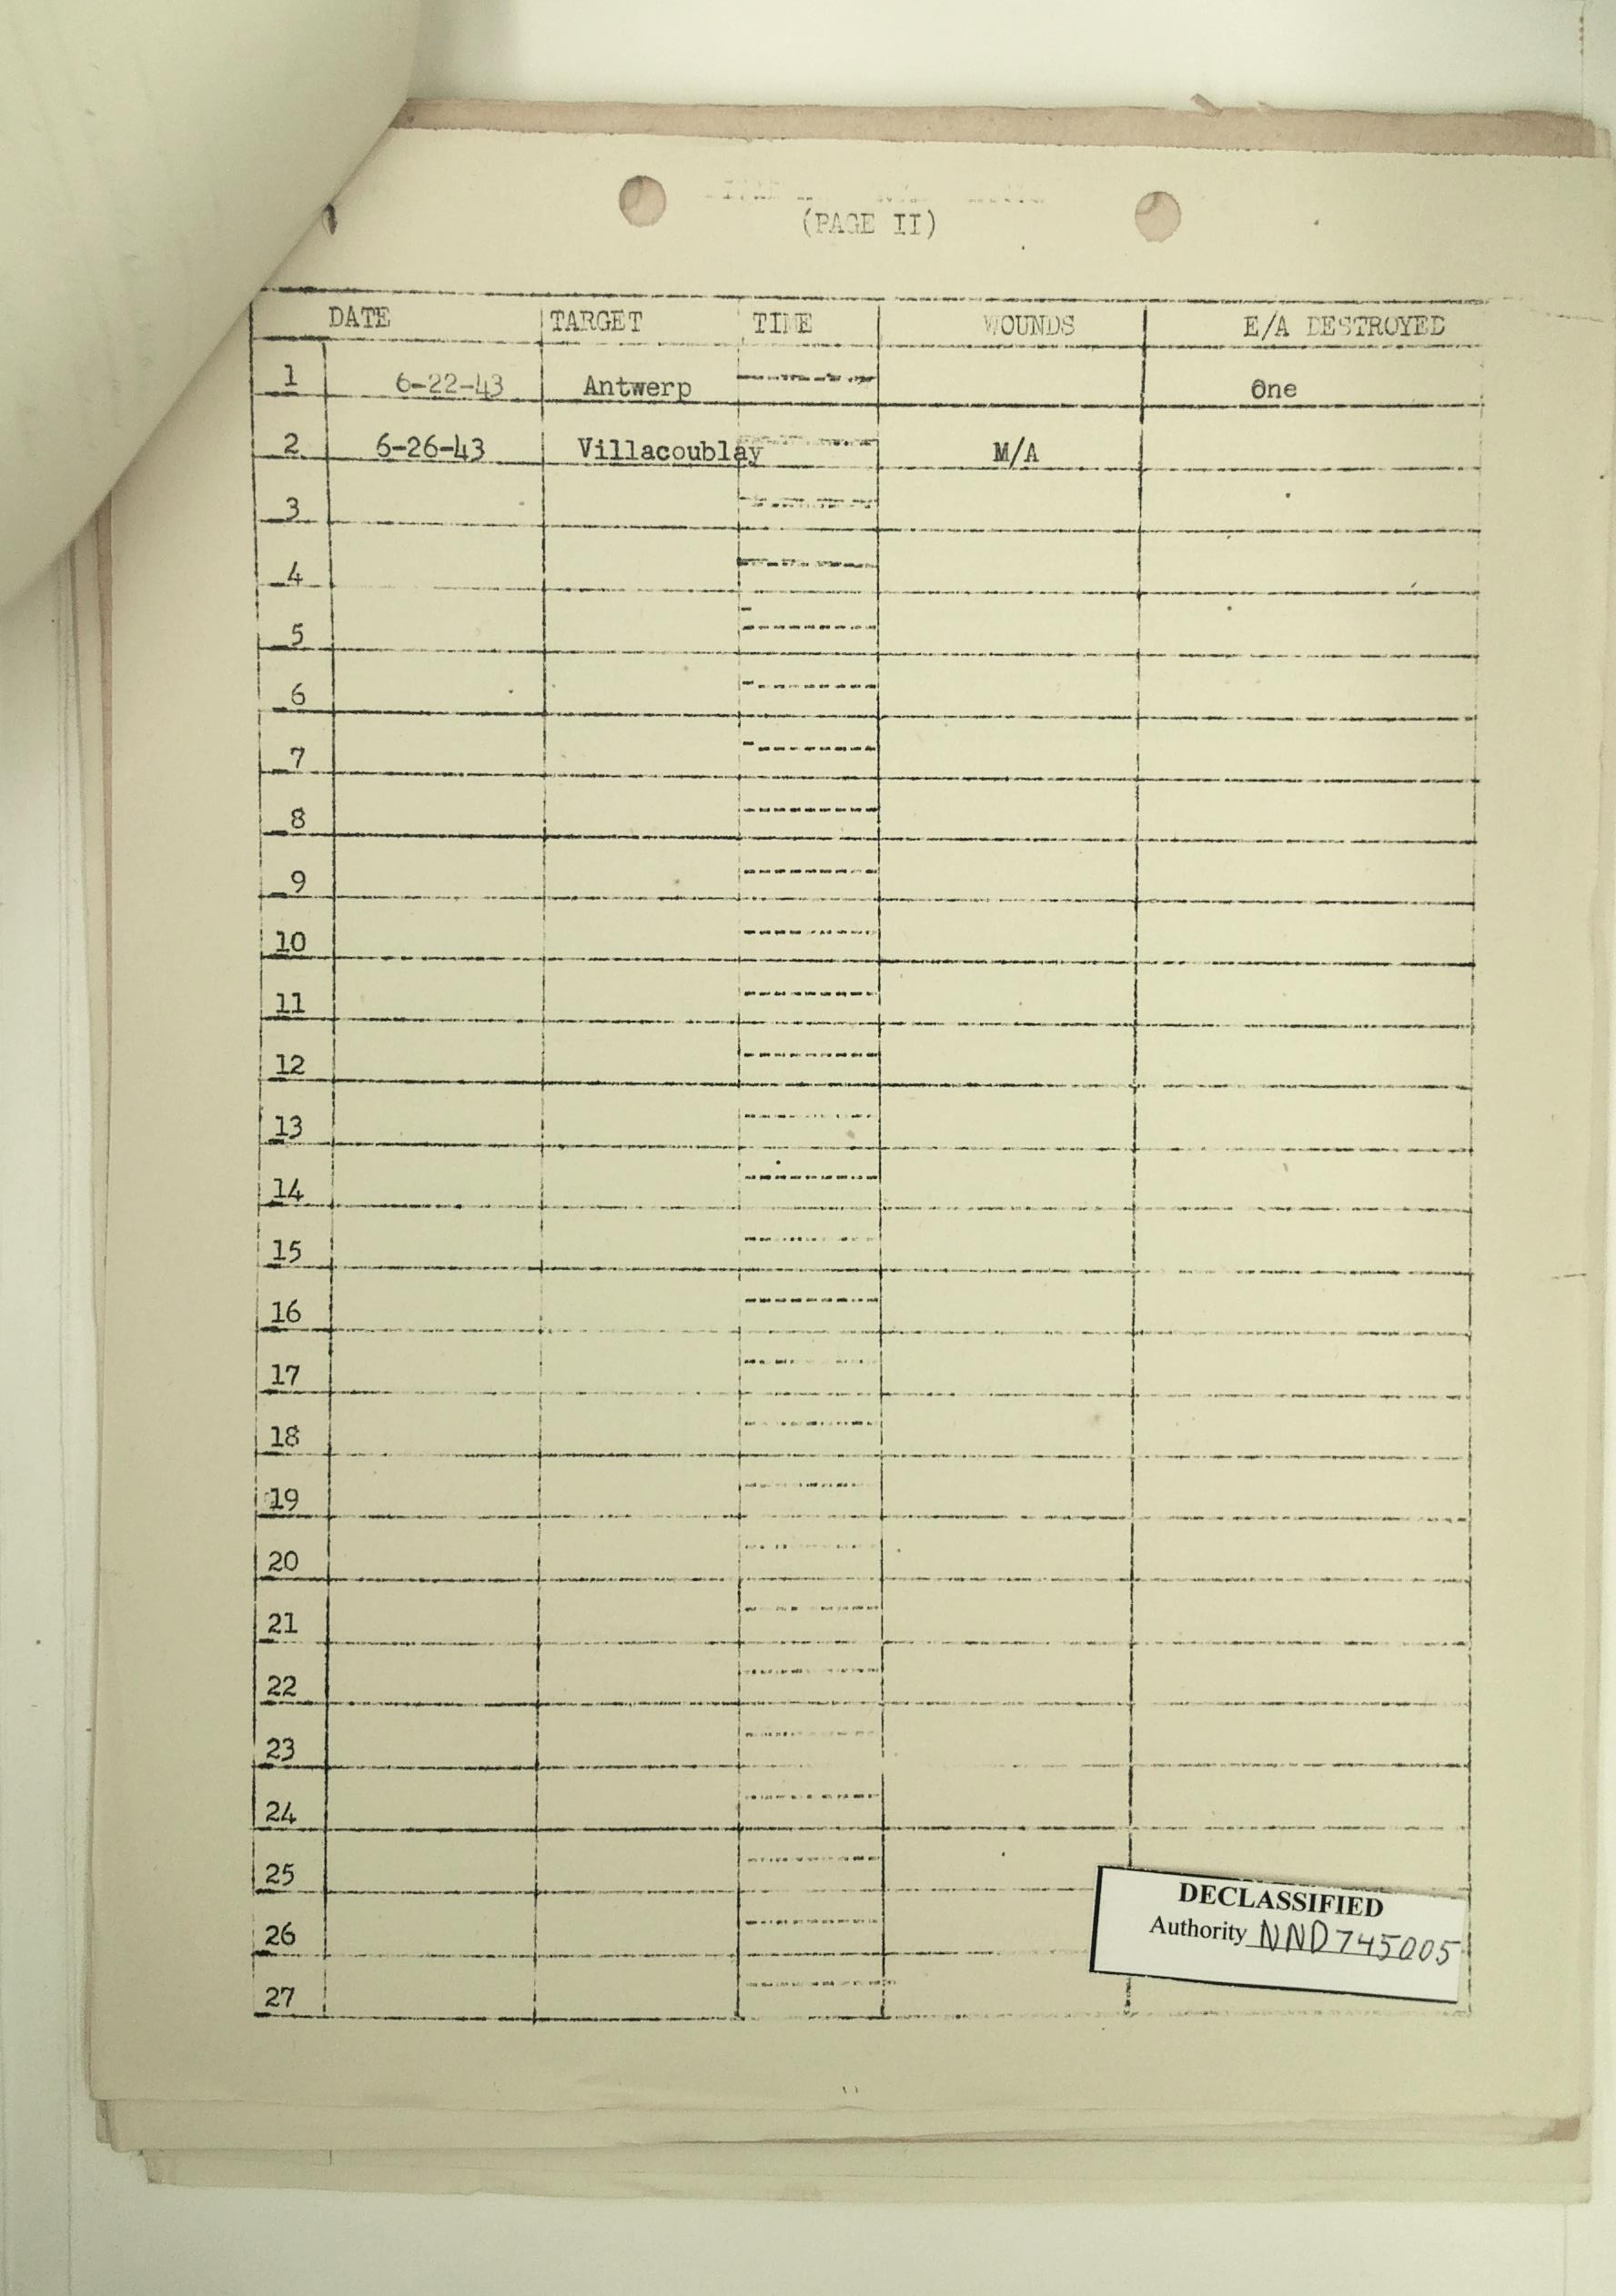 (PAGE II)
DATE TARGET TIME WOUNDS E/A DESTROYED
1 6-22-43 Antwerp One
2 6-26-43 Villacoublay M/A
3
4
5
6
7
8
9
10
11
12
13
14
15
16
17
18
19
20
21
22
23
24
25
26
27
DECLASSIFIED
Authority NND745005